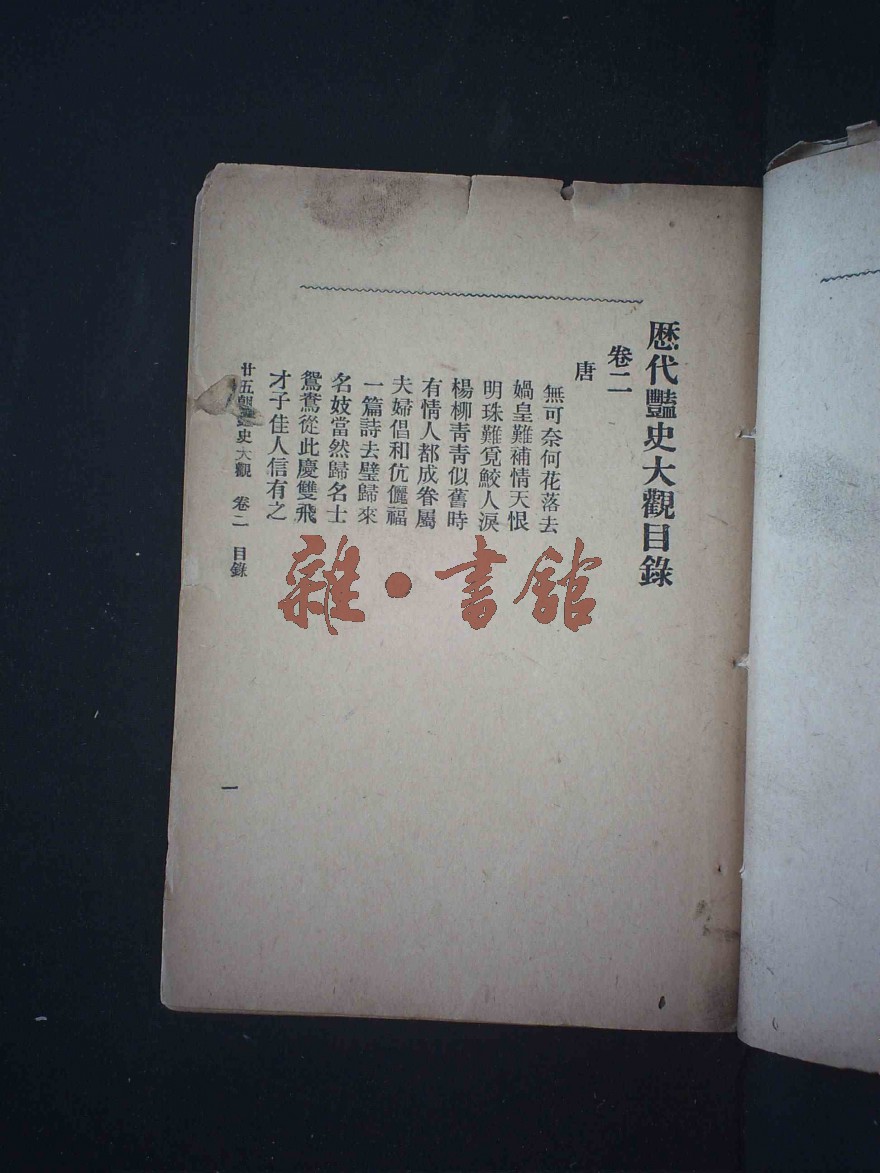 歷代豔史大觀目錄
卷二
唐
無可奈何花落去
媧皇難補情天恨
明珠難覓鮫人淚
楊柳靑靑似舊時
有情人都成眷屬
夫婦倡和伉儷福
一篇詩去璧歸來
名妓當然歸名士
鴛鴦從此慶雙飛
才子佳人信有之
廿五史大觀 卷二 目錄
一
雜·書館